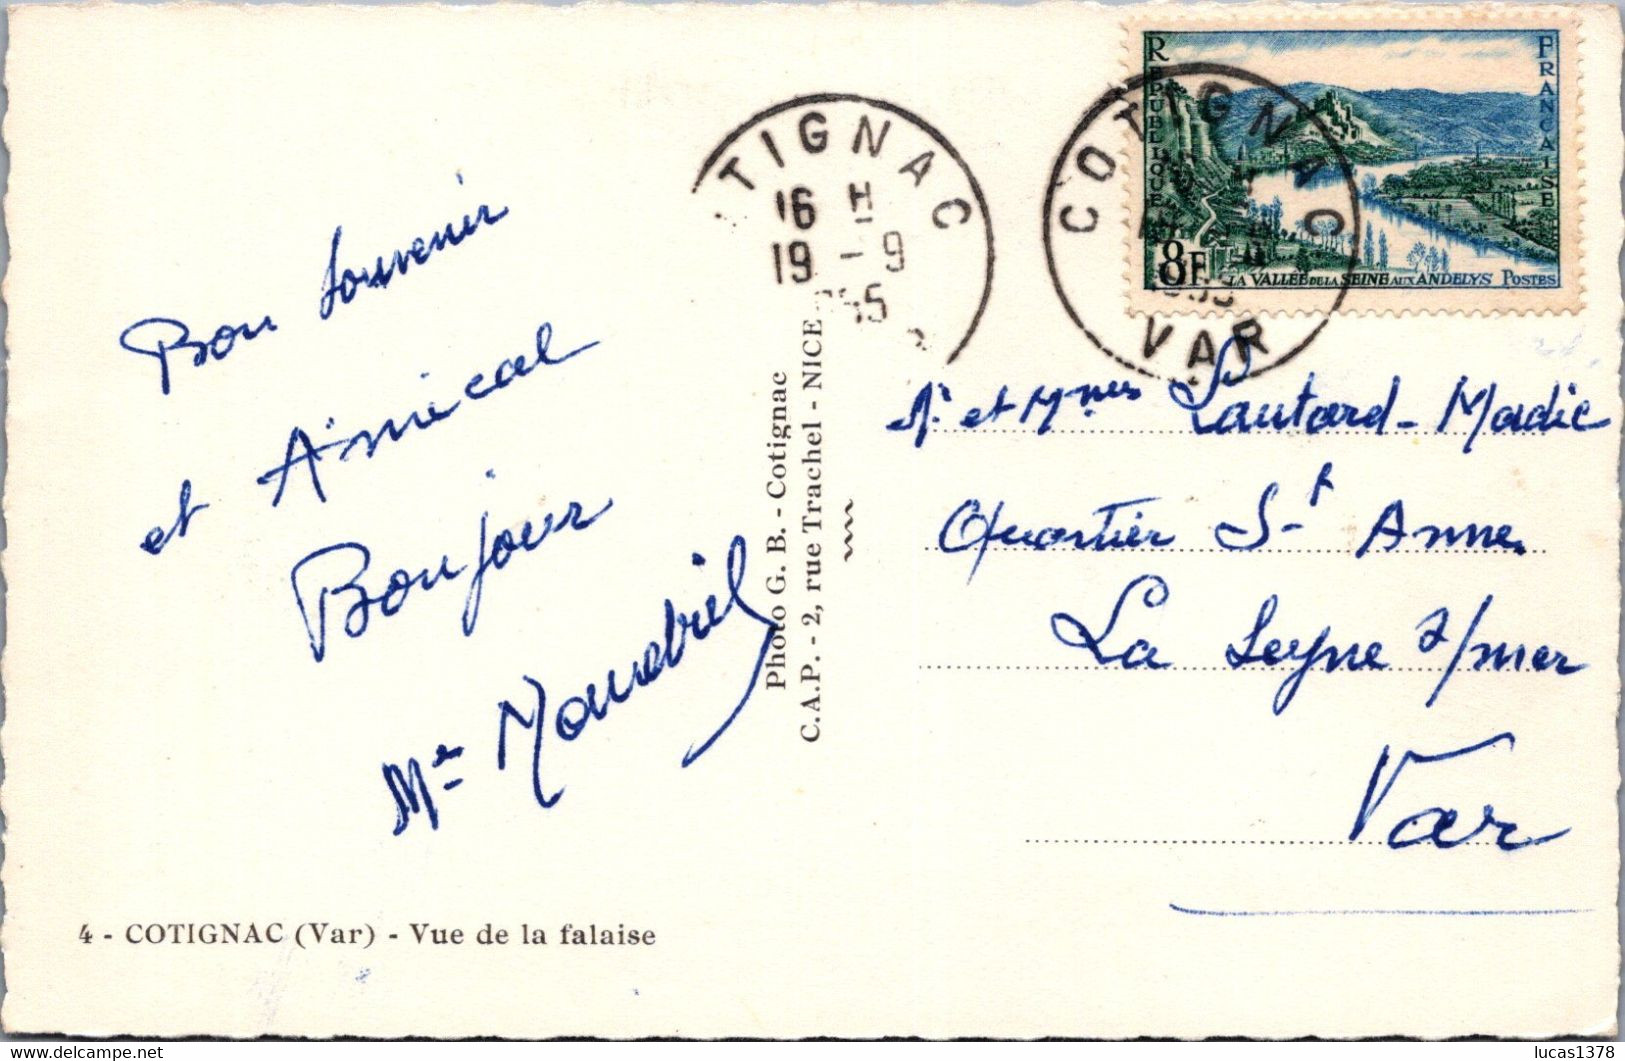 Bon Souvenir
et Amical
Bonjour
4 - COTIGNAC (Var) - Vue de la falaise
Photo G. B. - Cotignac
C.A.P. - 2, rue Trachel - NICE
TIGNAC
16 H
19 - 9
55
COTIGNAC
VAR
RÉPUBLIQUE
FRANÇAISE
8F
LA VALLÉE DE LA SEINE AUX ANDELYS POSTES
Mr et Mmes Lautard-Madic
Quartier St Anne
La Seyne s/mer
Var
lucas1378